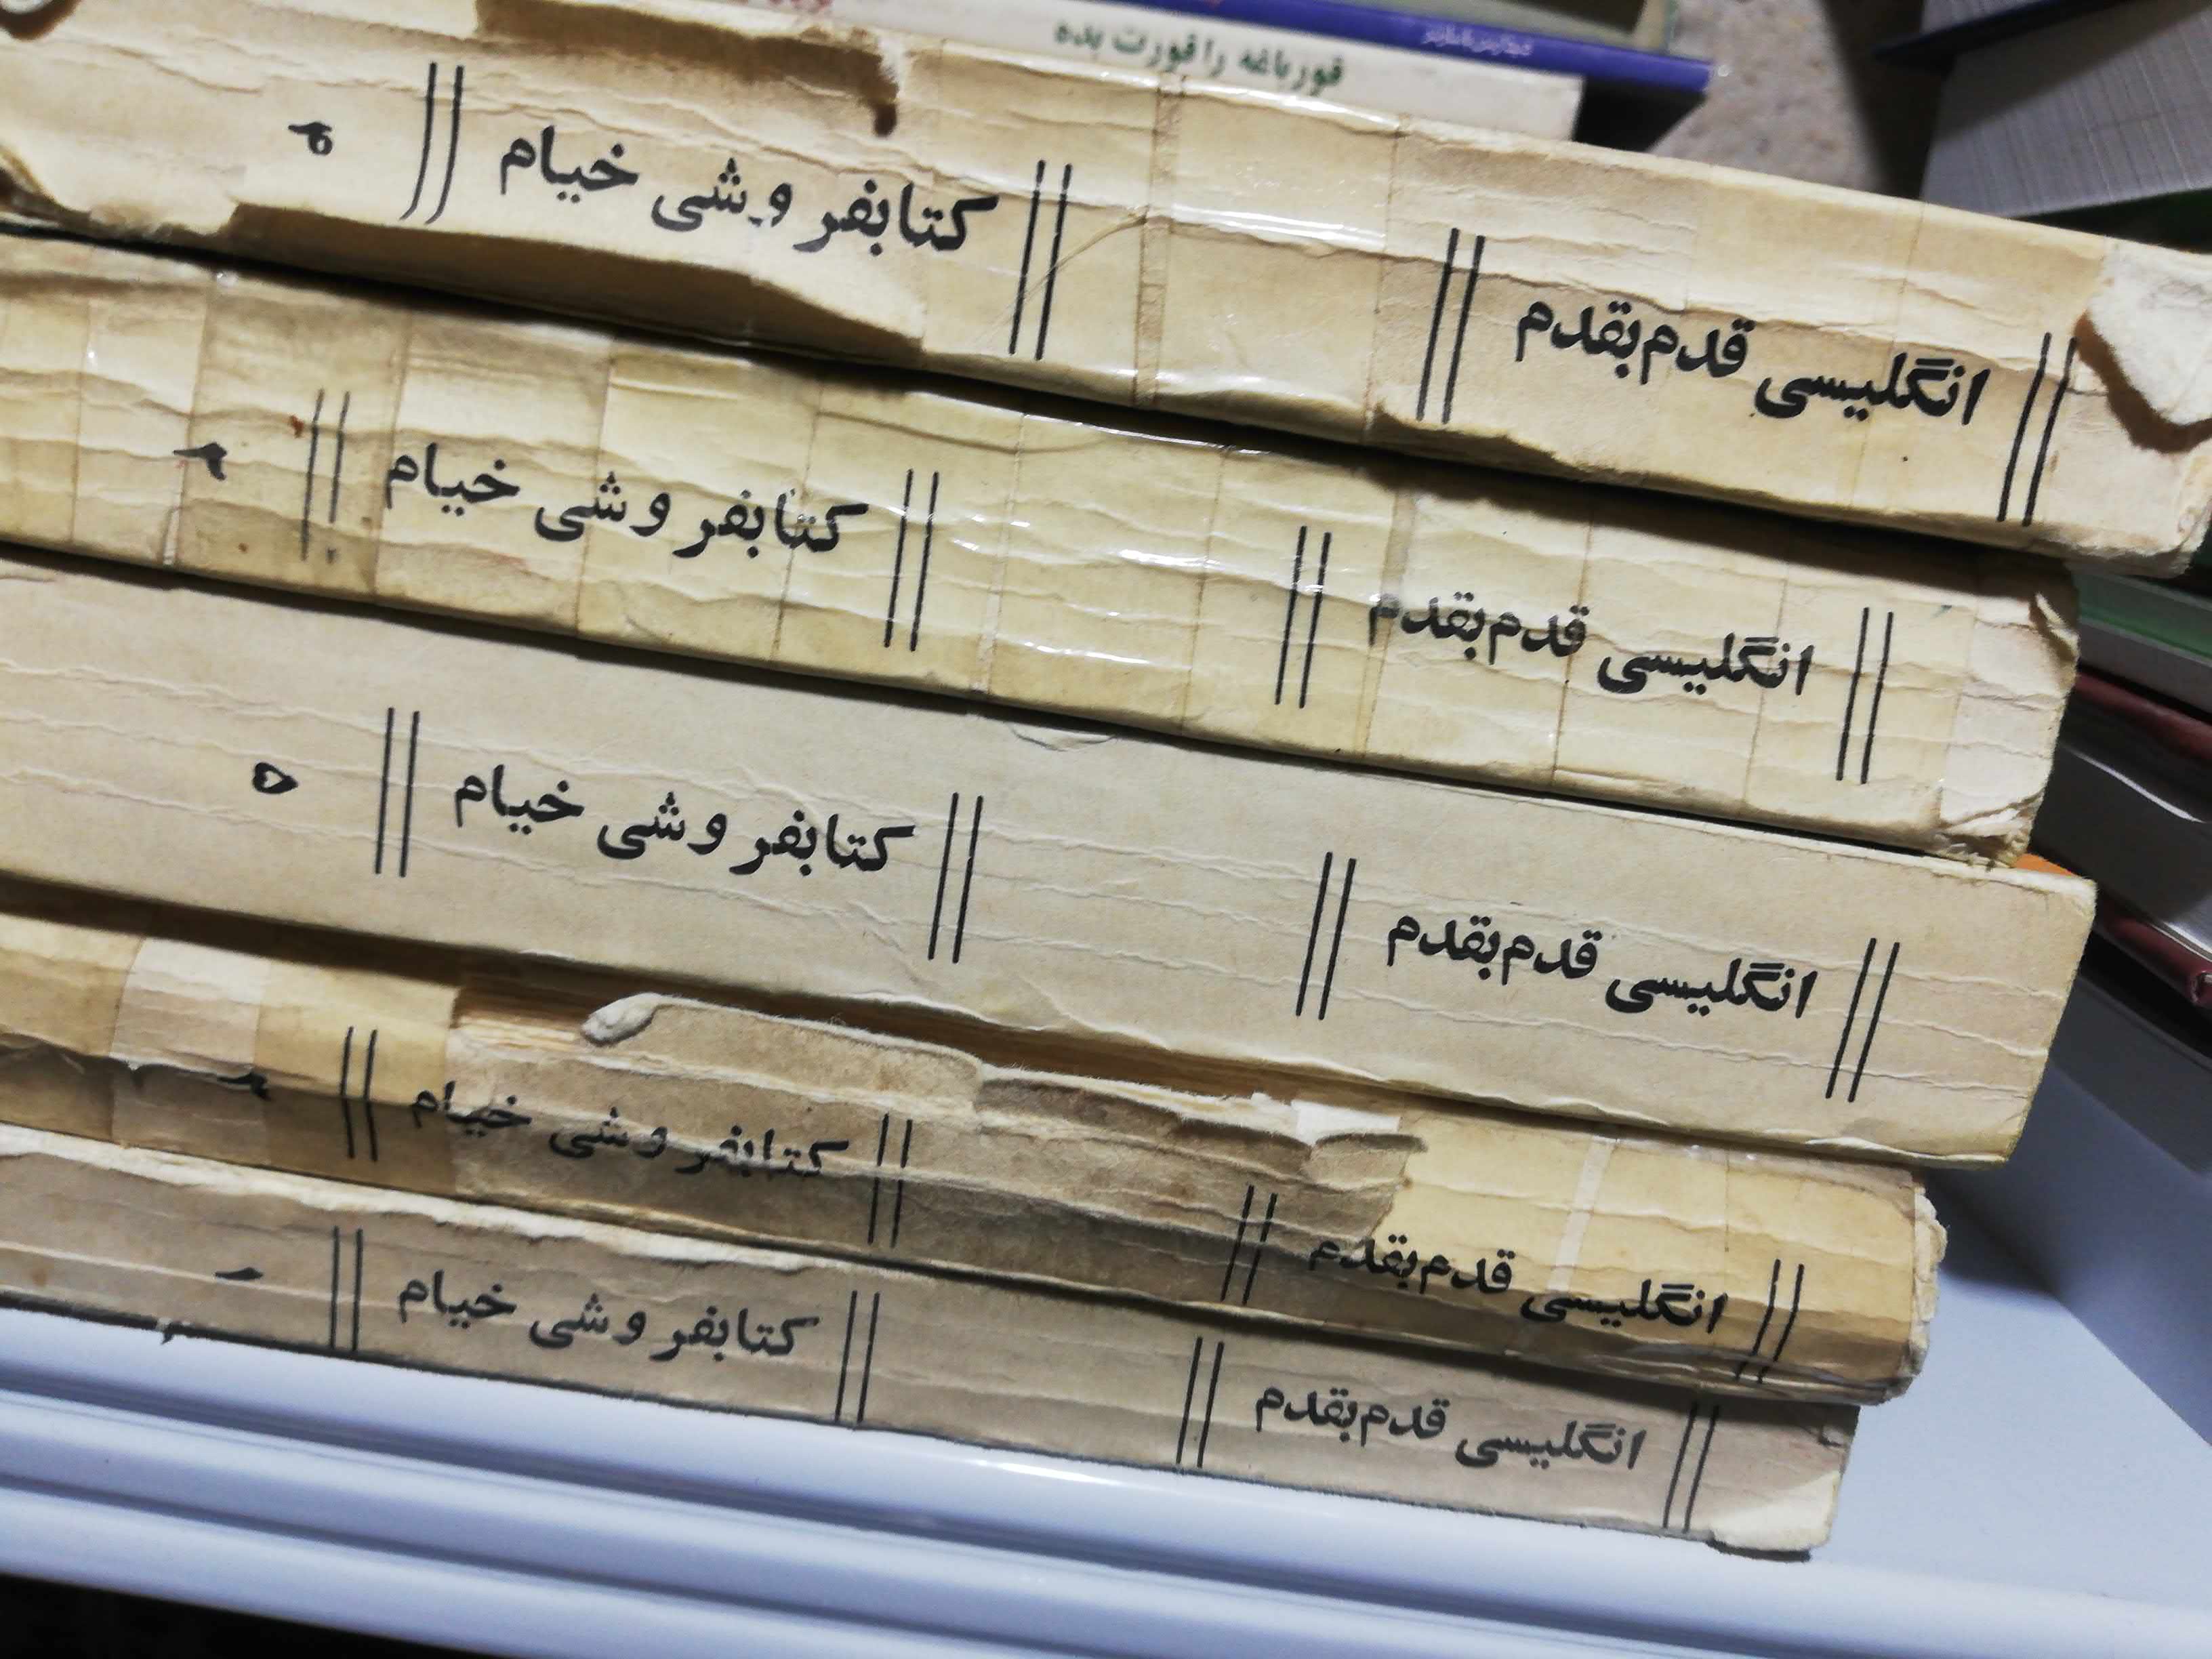 قورباغه را قورت بده
انگلیسی قدم‌بقدم کتابفروشی خیام ۴
انگلیسی قدم‌بقدم کتابفروشی خیام ۳
انگلیسی قدم‌بقدم کتابفروشی خیام ۵
انگلیسی قدم‌بقدم کتابفروشی خیام ۲
انگلیسی قدم‌بقدم کتابفروشی خیام ۱